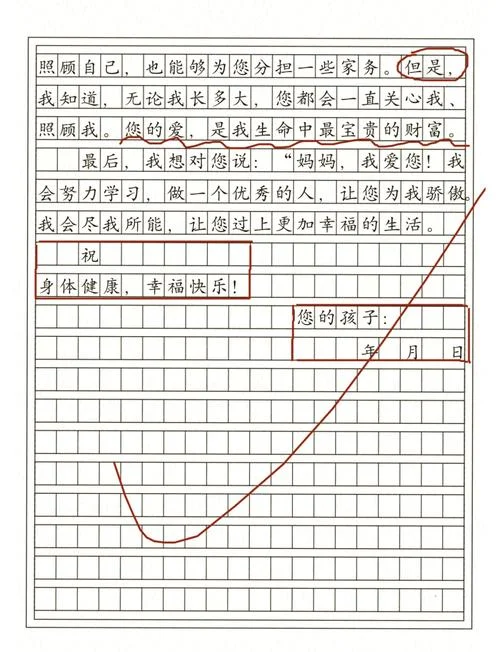 照顾自己，也能够为您分担一些家务。但是，
我知道，无论我长多大，您都会一直关心我、
照顾我。您的爱，是我生命中最宝贵的财富。
最后，我想对您说：“妈妈，我爱您！我
会努力学习，做一个优秀的人，让您为我骄傲。
我会尽我所能，让您过上更加幸福的生活。
祝
身体健康，幸福快乐！
您的孩子：
年 月 日